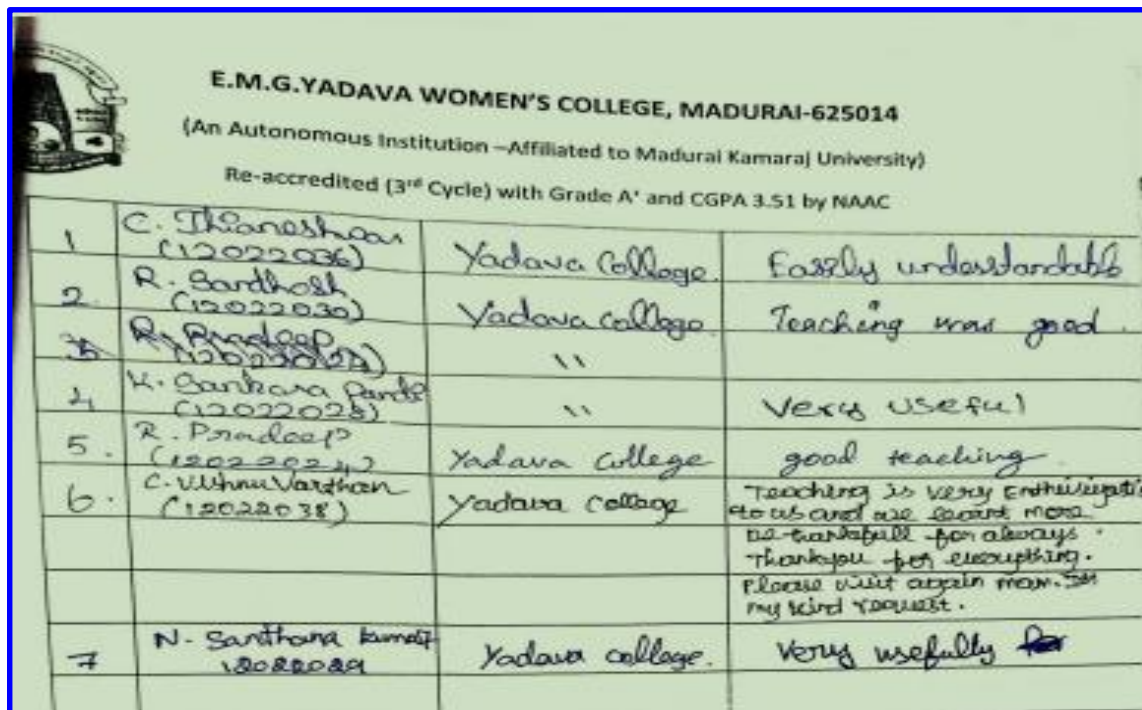 E.M.G.YADAVA WOMEN'S COLLEGE, MADURAI-625014
(An Autonomous Institution –Affiliated to Madurai Kamaraj University)
Re-accredited (3rd Cycle) with Grade A+ and CGPA 3.51 by NAAC
1 C. Thianeshwar (12022036) Yadava College. Easily understandable
2. R. Sandhosh (12022030) Yadava college Teaching was good.
3 R. Pradeep "
4 K. Sankara Pandi (12022028) " Very useful
5. R. Pradeep (12022024) Yadava College good teaching
6. C. Vishnu Varthan (12022038) Yadava College Teaching is very
to us and we learnt more
be thankfull for always.
Thankyou for everything.
Please visit again mam.
my kind request.
7 N. Santhana kumar 12022029 Yadava college. Very usefully